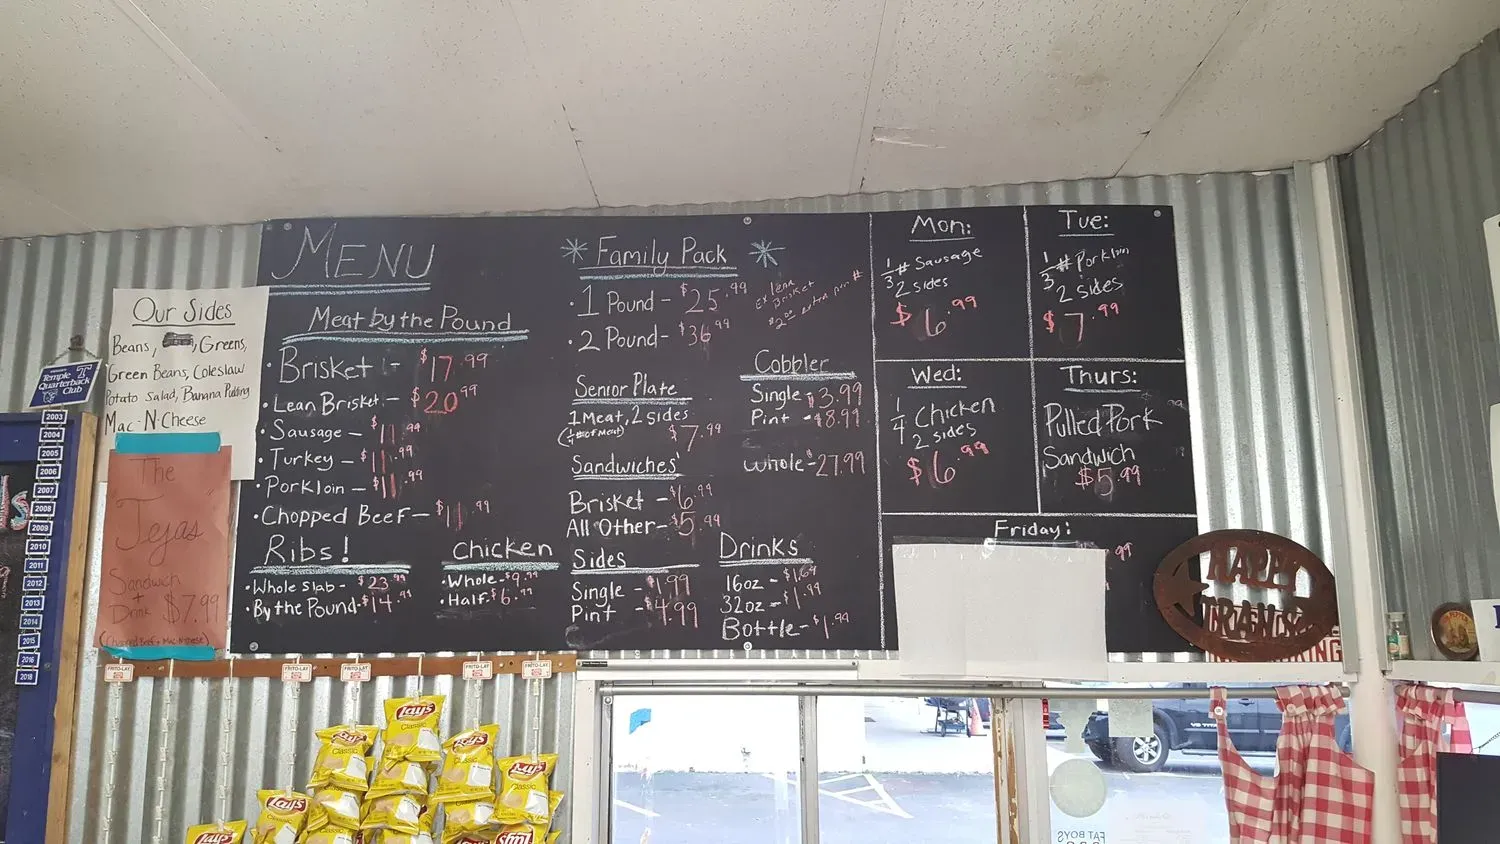 MENU
Meat by the Pound
• Brisket - $17.99
• Lean Brisket - $20.99
• Sausage - $11.99
• Turkey - $11.99
• Porkloin - $11.99
• Chopped Beef - $11.99
Ribs!
• Whole Slab - $23.99
• By the Pound - $14.99
Chicken
• Whole - $9.99
• Half - $6.99
Family Pack
• 1 Pound - $25.99
• 2 Pound - $36.99
Brisket
Senior Plate
1 Meat, 2 sides
(1/4 # of Meat)
$7.99
Sandwiches
Brisket - $6.99
All Other - $5.99
Sides
Single - $1.99
Pint - $4.99
Cobbler
Single $3.99
Pint - $8.99
Whole - $27.99
Drinks
16oz - $1.69
32oz - $1.99
Bottle - $1.99
Mon:
1/3 # Sausage
2 sides
$6.99
Tue:
1/3 # Porkloin
2 sides
$7.99
Wed:
1/4 Chicken
2 sides
$6.99
Thurs:
Pulled Pork
Sandwich
$5.99
Friday:
.99
Our Sides
Beans, Greens,
Green Beans, Coleslaw
Potato Salad, Banana Pudding
Mac-N-Cheese
The
"Tejas"
Sandwich
+
Drink $7.99
(Chopped Beef + Mac-N-Cheese)
Temple
Quarterback
Club
2003
2004
2005
2006
2007
2008
2009
2010
2011
2012
2013
2014
2015
2016
2018
FRITO-LAY
FRITO-LAY
FRITO-LAY
FRITO-LAY
FRITO-LAY
Lay's
Classic
Lay's
Classic
Lay's
Classic
Lay's
Classic
Lay's
Lay's
HAPPY
TRAILS
FAT BOYS